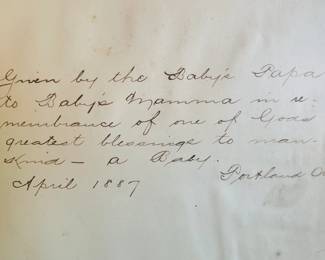 Given by the Baby's Papa
to Baby's Mamma in re-
membrance of one of Gods
greatest blessings to man-
kind — a Baby.
Portland O
April 1887